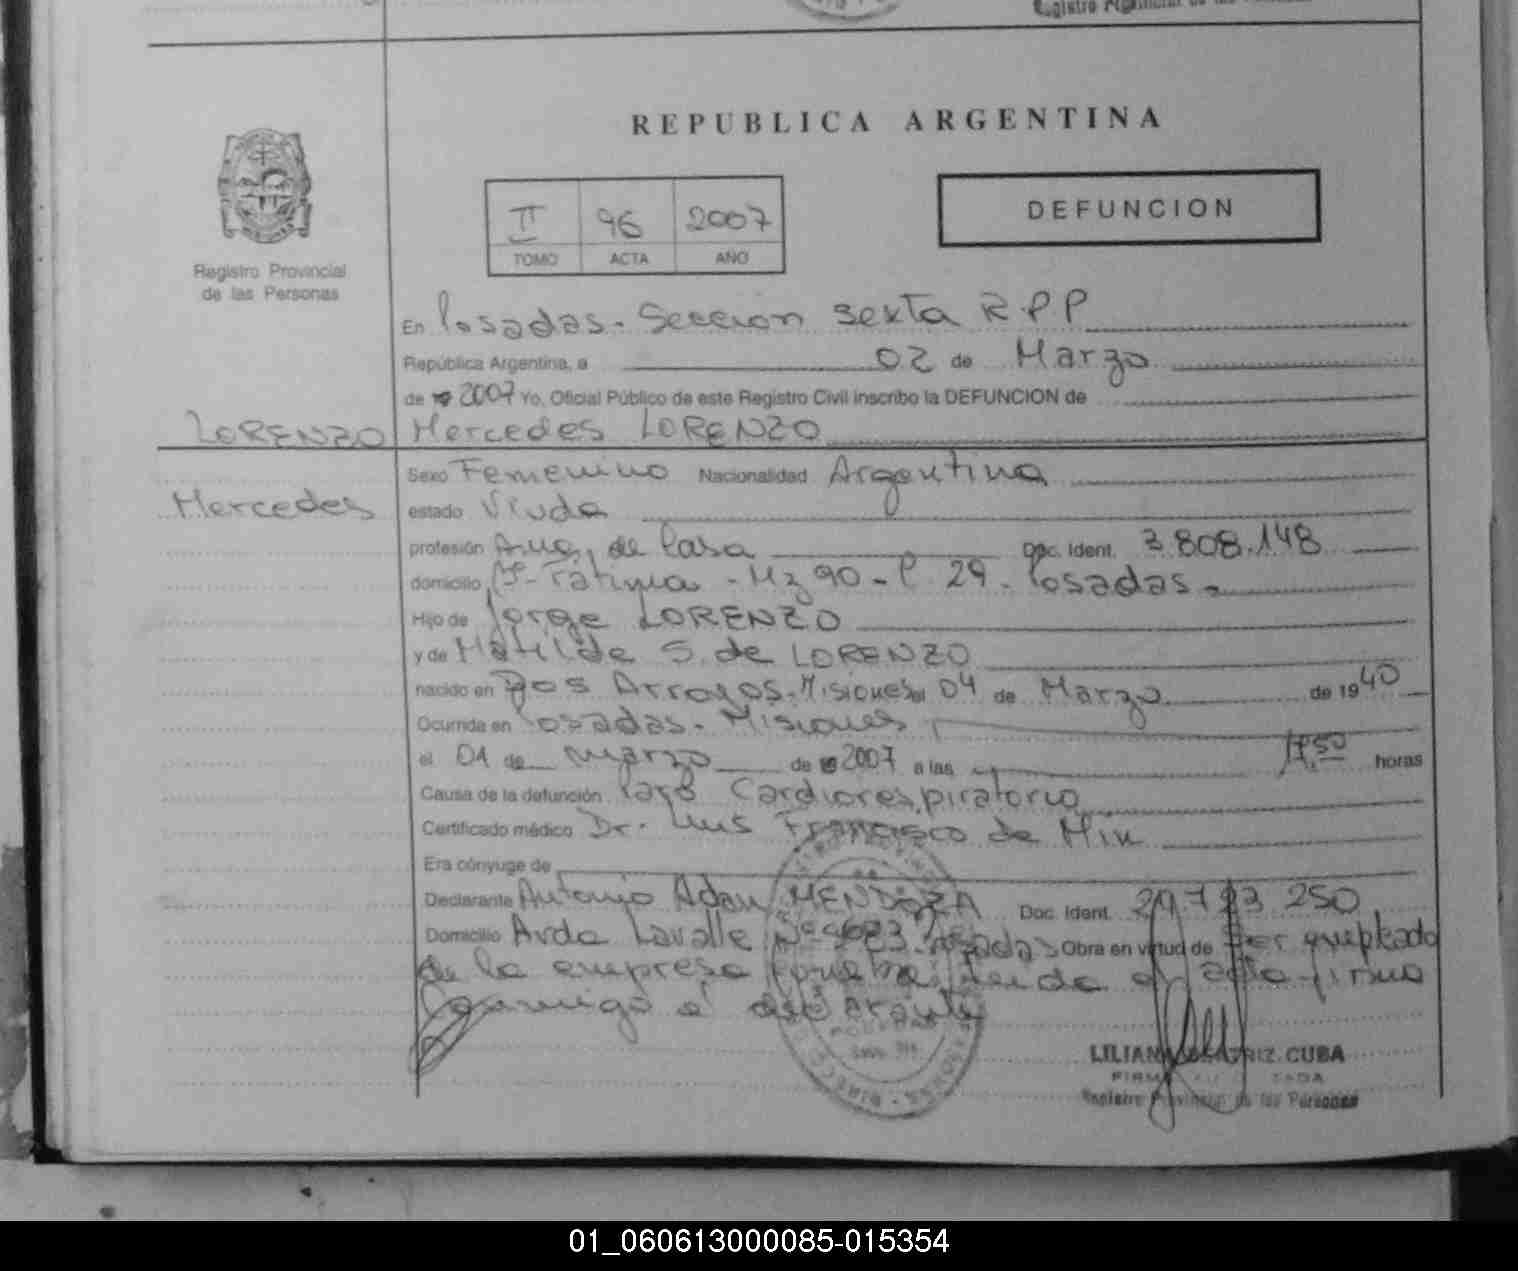 Registro Provincial de las Personas
REPUBLICA ARGENTINA
DEFUNCION
II 96 2007
TOMO ACTA AÑO
Registro Provincial
de las Personas
En Posadas. Seccion Sexta R.P.P
República Argentina, a 02 de Marzo
de 19 2007 Yo, Oficial Público de este Registro Civil inscribo la DEFUNCION de
LORENZO Mercedes LORENZO
Sexo Femenino Nacionalidad Argentina
Mercedes estado Viuda
profesión Ama de Casa Doc. Ident. 3.808.148
domicilio Fátima - Mz 90 - C 29 - Posadas.
Hijo de Jorge LORENZO
y de Matilde S. de LORENZO
nacido en Dos Arroyos. Misiones el 04 de Marzo de 1940
Ocurrida en Posadas. Misiones
el 01 de marzo de 19 2007 a las 17,50 horas
Causa de la defunción Paro Cardiorespiratorio
Certificado médico Dr. Luis Francisco de Min
Era cónyuge de
Declarante Antonio Adan MENDOZA Doc. Ident. 250
Domicilio Avda Lavalle Nº Posadas Obra en virtud de ser empleado
de la empresa el acta firma
conmigo el declarante
LILIANA BEATRIZ CUBA
FIRMA
Registro Provincial de las Personas
01_060613000085-015354